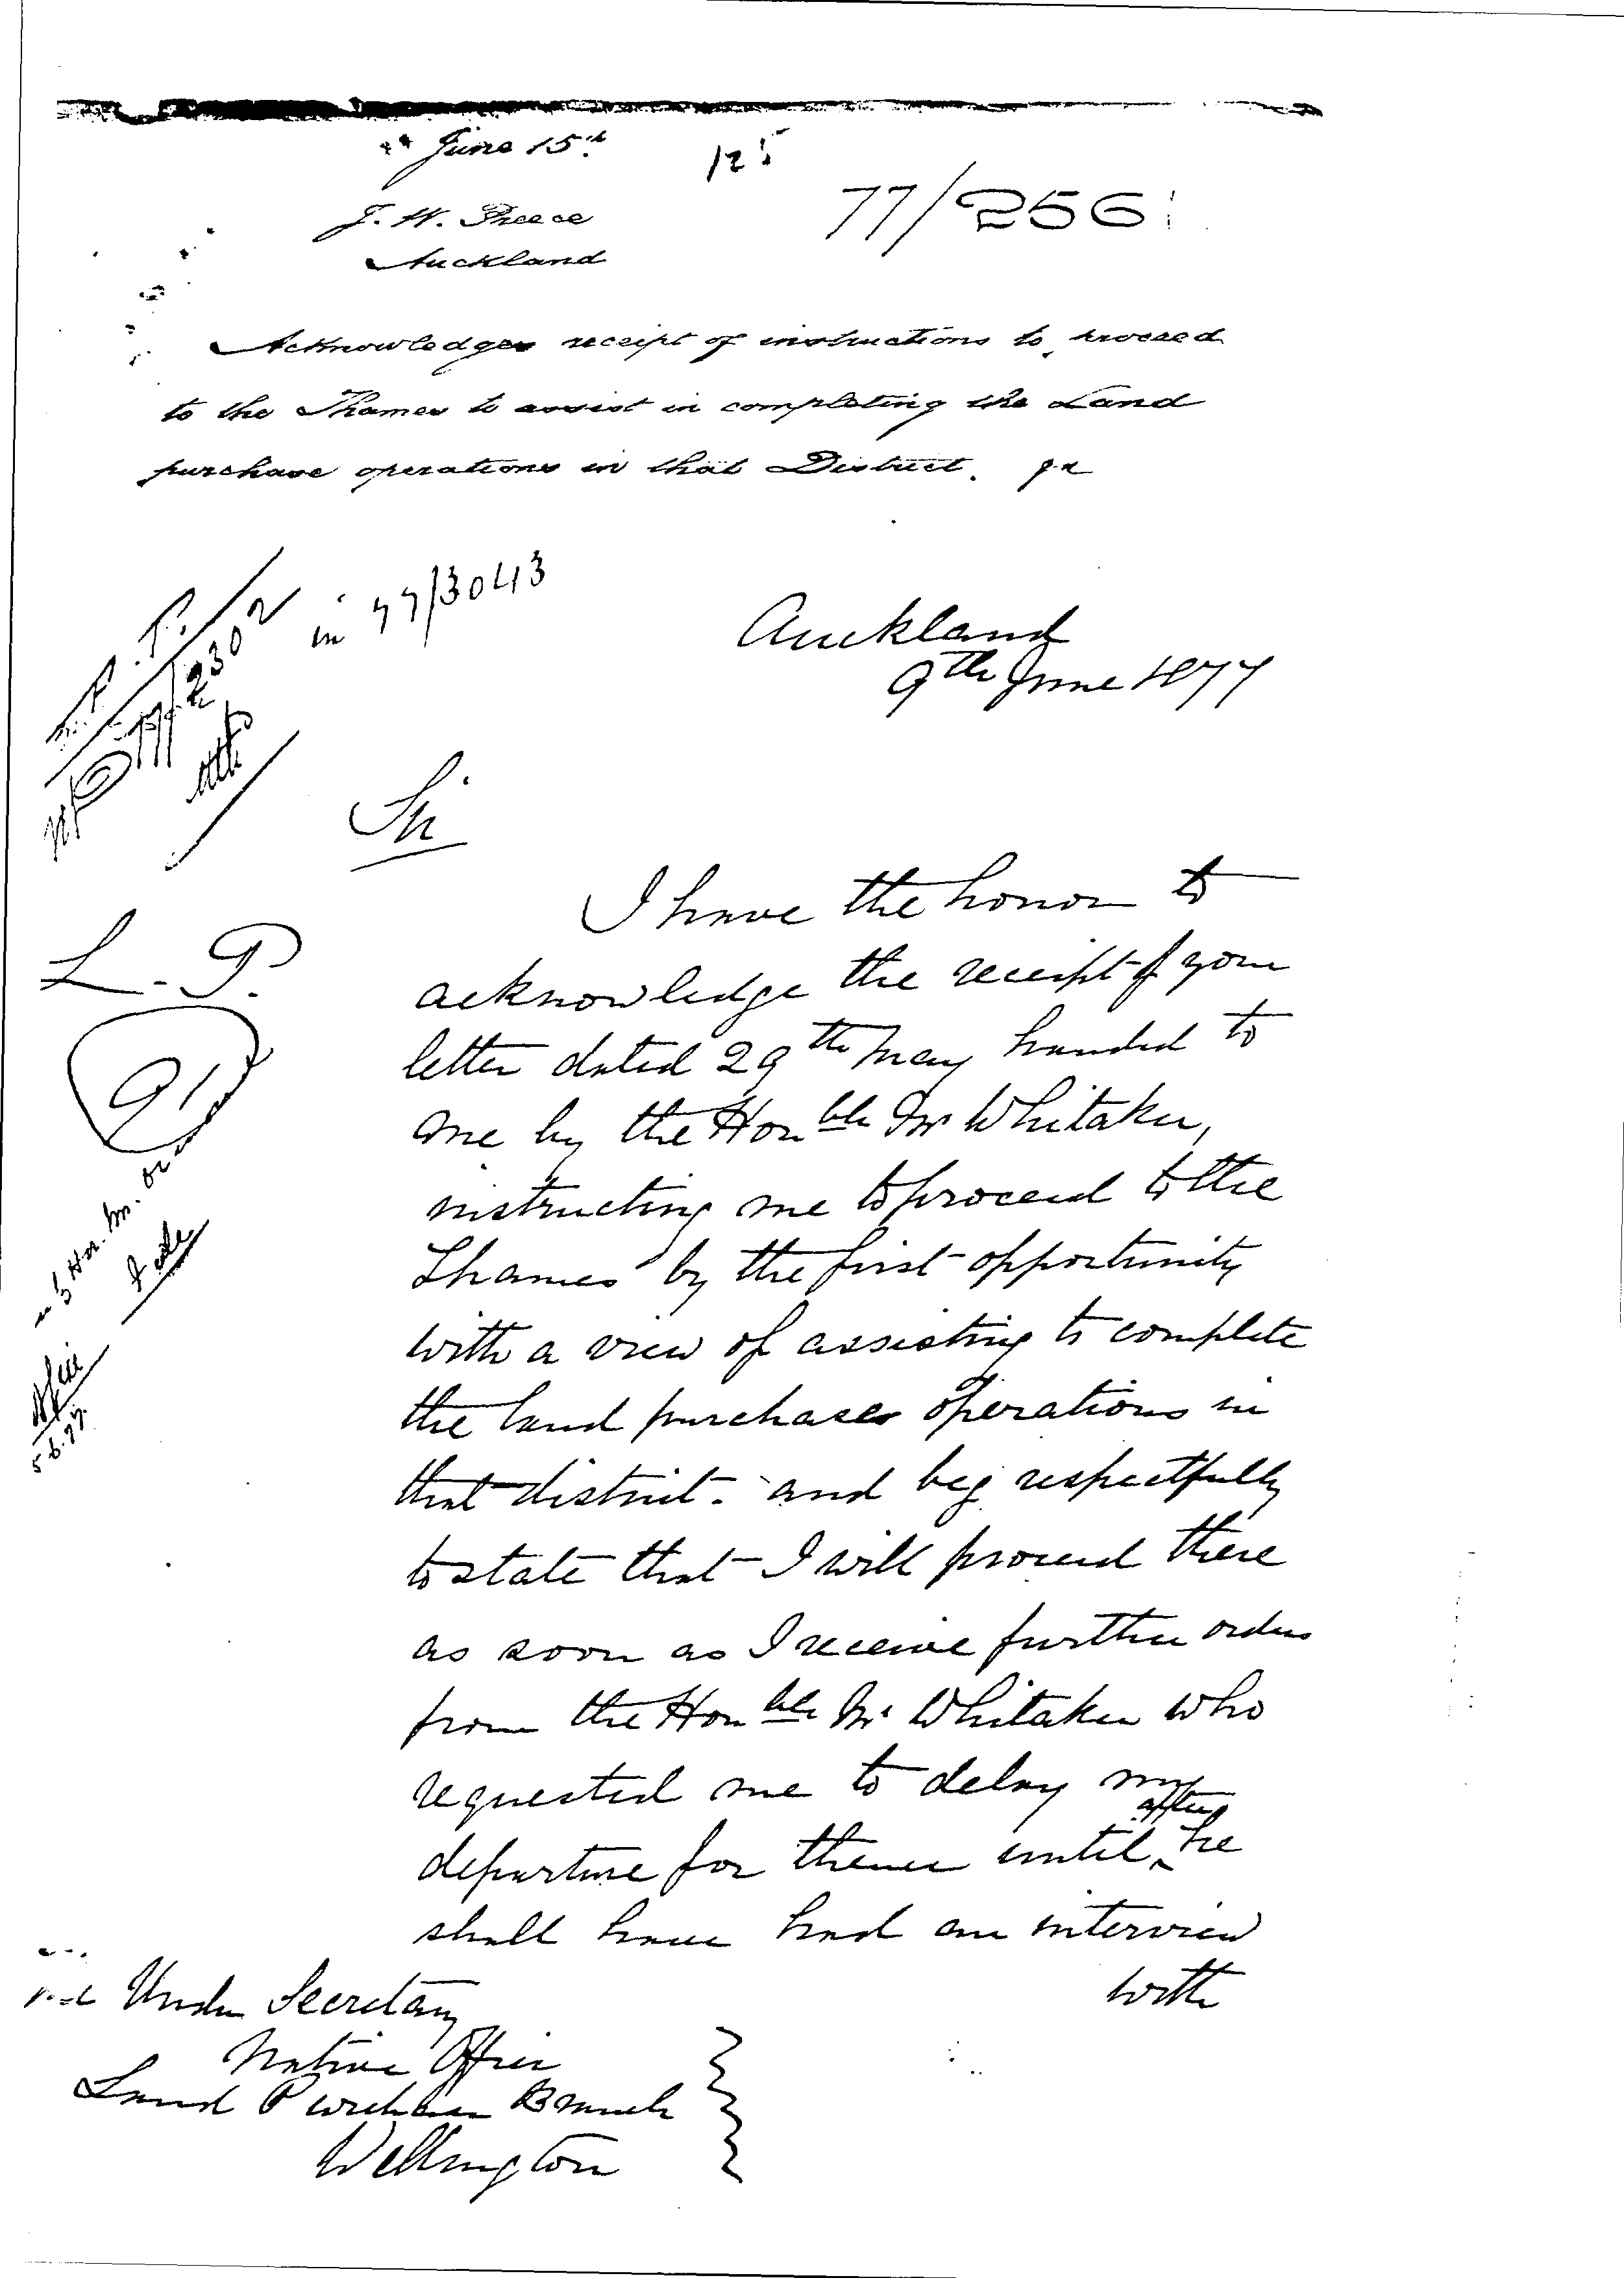 June 15th
125
77/256
J. W. Preece
Auckland
Acknowledges receipt of instructions to proceed
to the Thames to assist in completing the Land
purchase operations in that District.
in 77/3043
Auckland
9th June 1877
Sir
I have the honor to
acknowledge the receipt of your
letter dated 29th May handed to
me by the Honble Mr Whitaker,
instructing me to proceed to the
Thames by the first opportunity
with a view of assisting to complete
the land purchases operations in
that district. and beg respectfully
to state that I will proceed there
as soon as I receive further orders
from the Honble Mr Whitaker who
requested me to delay my
departure for thence until after he
shall have had an interview
with
L. P.
91
Under Secretary
Native Office
Land Purchase Branch
Wellington